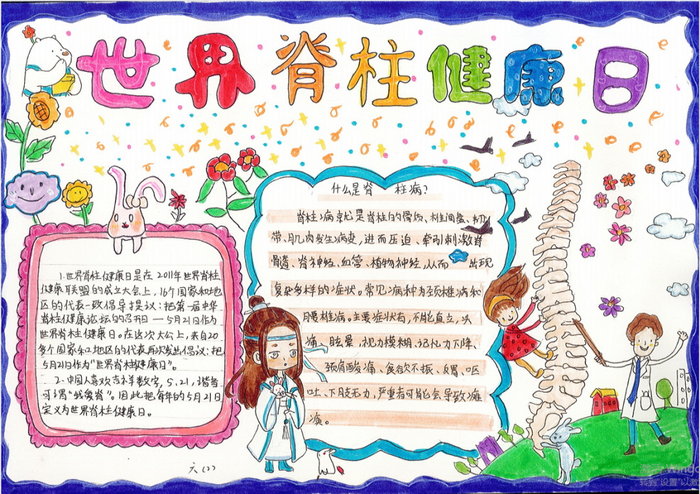 世界脊柱健康日
什么是脊柱病?
脊柱病变尤是脊柱的骨质、椎间盘、韧
带、肌肉发生病变,进而压迫、牵引刺激脊
髓、脊神经、血管、植物神经,从而出现
复杂多样的症状。常见病种为颈椎病和
腰椎病。主要症状有,不能直立,头
痛、眩晕、视力模糊、记忆力下降、
颈肩酸痛、食欲不振、反胃、呕
吐、下肢无力,严重者可能会导致瘫
痪。
1.世界脊柱健康日是在2011年世界脊柱
健康联盟的成立大会上,16个国家和地
区的代表一致倡导提议:把第一届中华
脊柱健康论坛的召开日——5月21日作为
世界脊柱健康日。在这次大会上,来自20
多个国家和地区的代表再次发出倡议:把
5月21日作为"世界脊柱健康日"。
2.中国人喜欢吉祥数字,5.21,谐音
可谓"我爱脊"。因此把每年的5月21日
定义为世界脊柱健康日。
六(2)